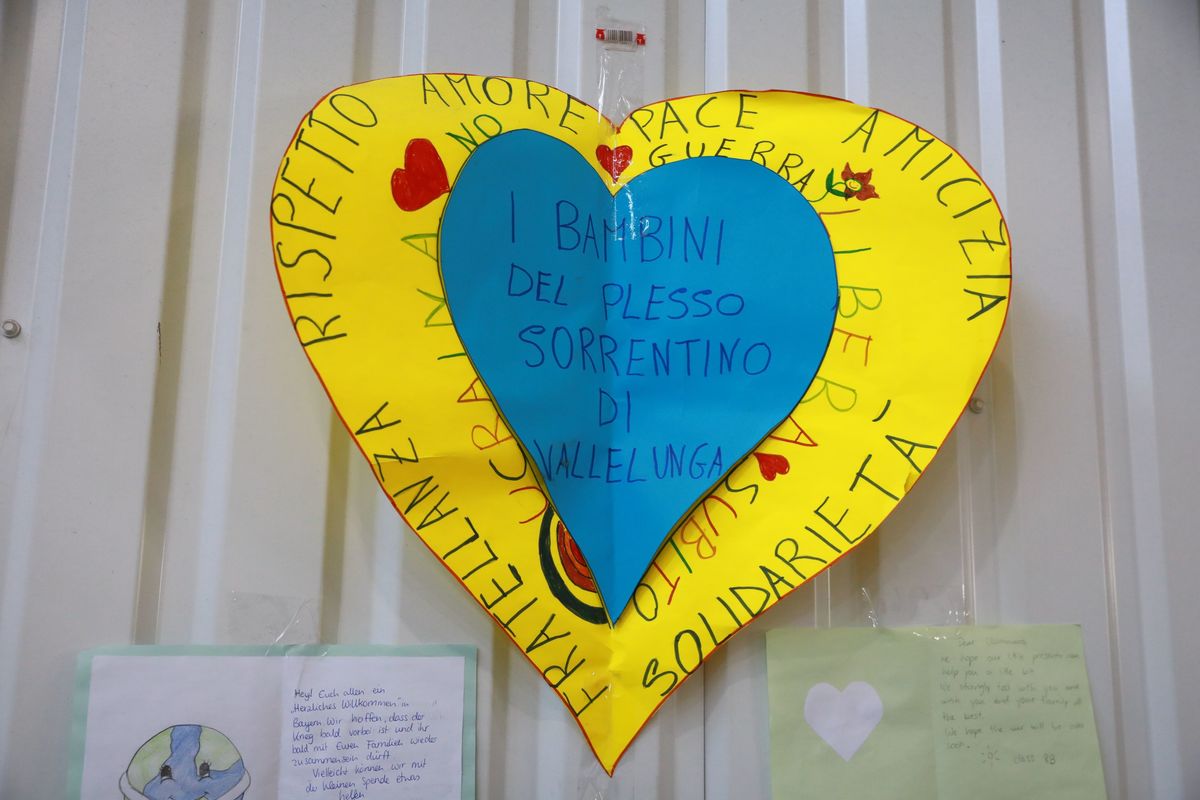 RISPETTO AMORE PACE AMICIZIA
FRATELLANZA SOLIDARIETÀ
NO GUERRA
UCRAINA LIBERA SUBITO
I BAMBINI
DEL PLESSO
SORRENTINO
DI
VALLELUNGA
Hey! Euch allen ein
„Herzliches Willkommen" in
Bayern. Wir hoffen, dass der
Krieg bald vorbei ist und ihr
bald mit Euren Familien wieder
zusammensein dürft
Vielleicht können wir mit
der kleinen Spende etwas
helfen
Dear
We hope our little presents can
help you a little bit
We strongly feel with you and
wish you and your family all
the best.
We hope the war will be over
soon.
class 8B